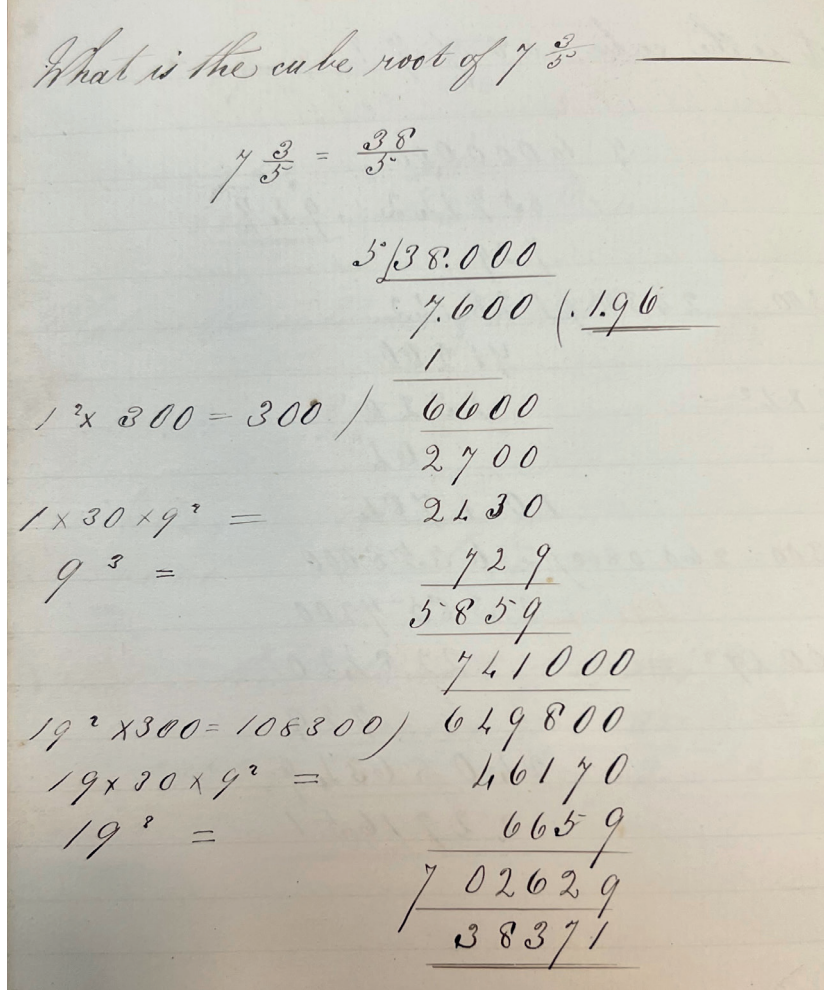 What is the cube root of 7 3/5
7 3/5 = 38/5
5/38.000
7.600 (.1.96
1
1² x 300 = 300 ) 6600
2700
1 x 30 x 9² = 2430
9³ = 729
5859
741000
19² x 300 = 108300 ) 649800
19 x 30 x 9² = 46170
19³ = 6659
702629
38371